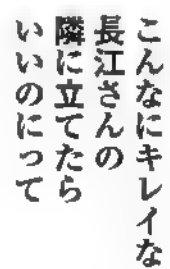 こんなにキレイな
長江さんの
隣に立てたら
いいのにって